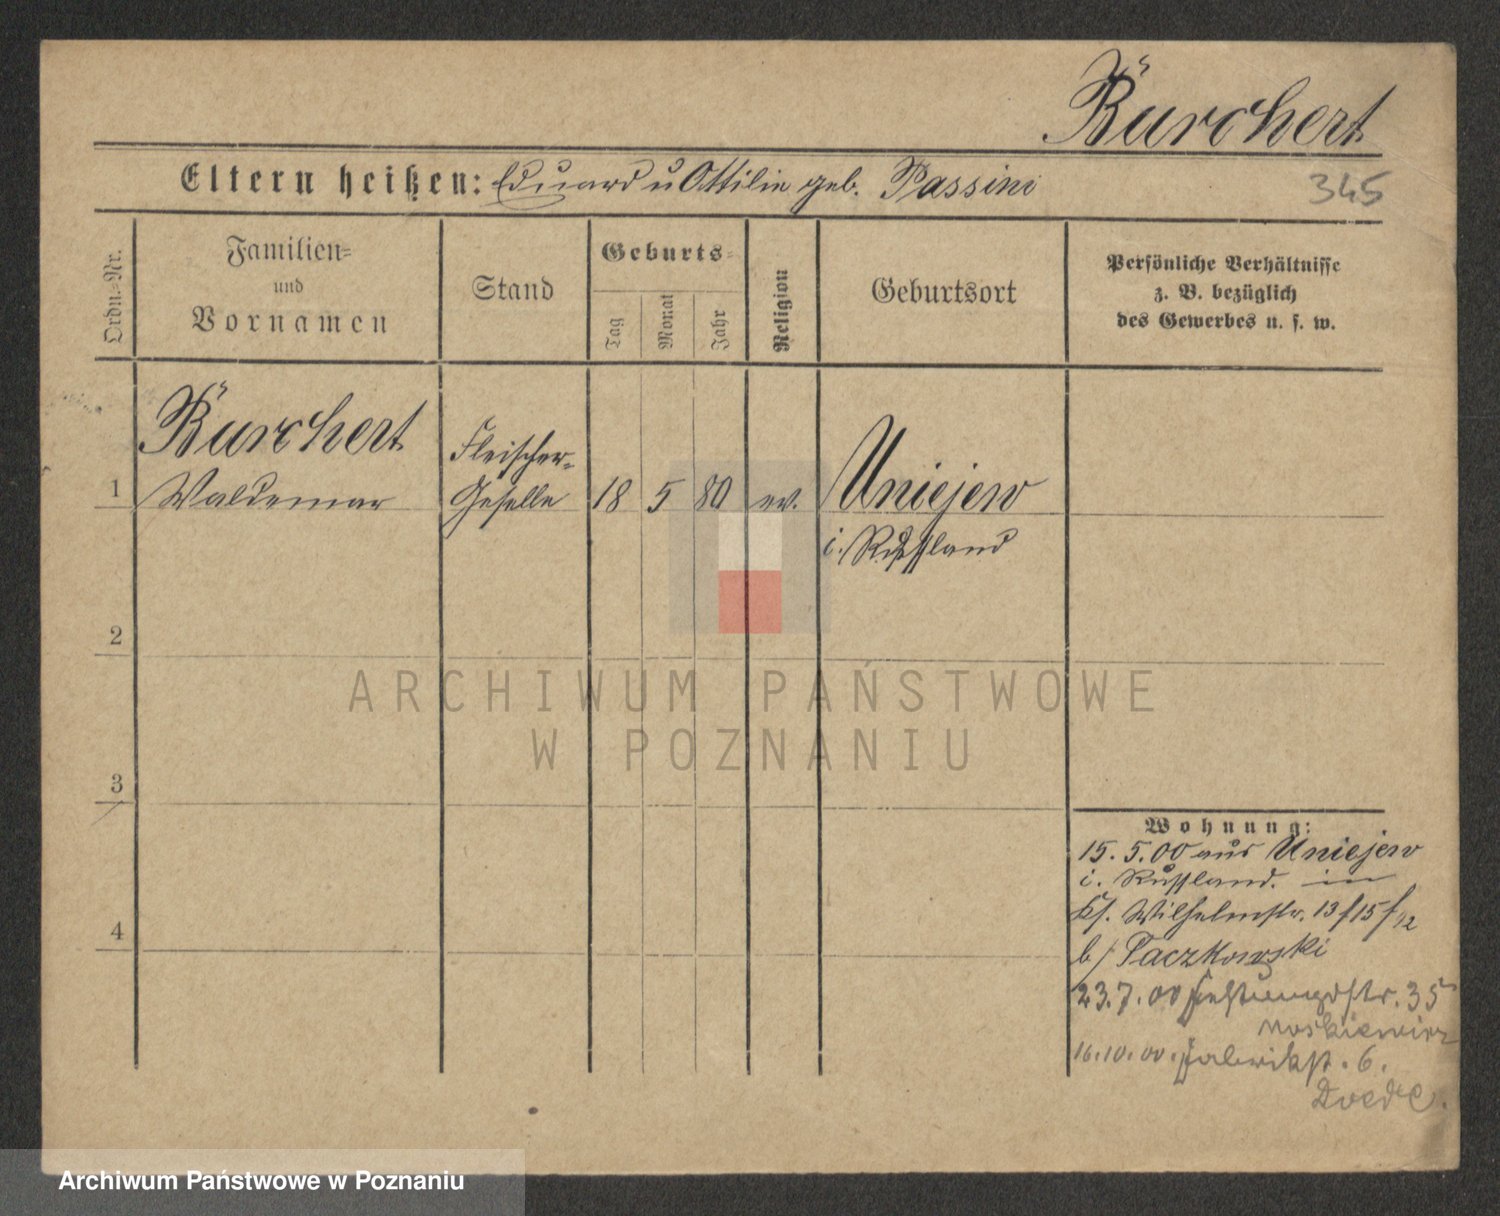 Burchert
Eltern heißen: Eduard u Ottilie geb. Passini
345
Ordn.-Nr.
Familien- und Vornamen
Stand
Geburts-
Tag
Monat
Jahr
Religion
Geburtsort
Persönliche Verhältnisse
z. B. bezüglich
des Gewerbes u. s. w.
Burchert
Fleischer-
1 Waldemar Geselle 18 5 80 ev. Uniejew
i. Russland
2
ARCHIWUM PAŃSTWOWE
W POZNANIU
3
Wohnung:
15. 5. 00 aus Uniejew
i. Russland. in
Wilhelmstr. 13 f 15 f/12
4
b/ Paczkowski
23. 7. 00 Festungsstr. 35
16. 10. 00. Fabrikst. 6.
Archiwum Państwowe w Poznaniu